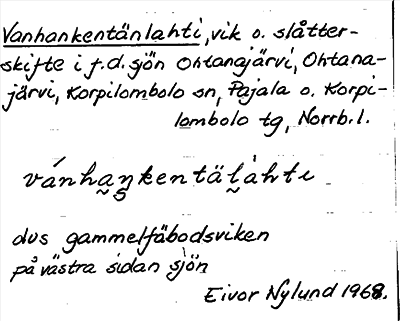 Vanhankentänlahti, vik o. slåtter-
skifte i f.d. sjön Ohtanajärvi, Ohtana-
järvi, Korpilombolo sn, Pajala o. Korpi-
lombolo tg, Norrb. l.
vánha̰ŋkentäl̰àhti
dvs gammelfäbodsviken
på västra sidan sjön
Eivor Nylund 1968.